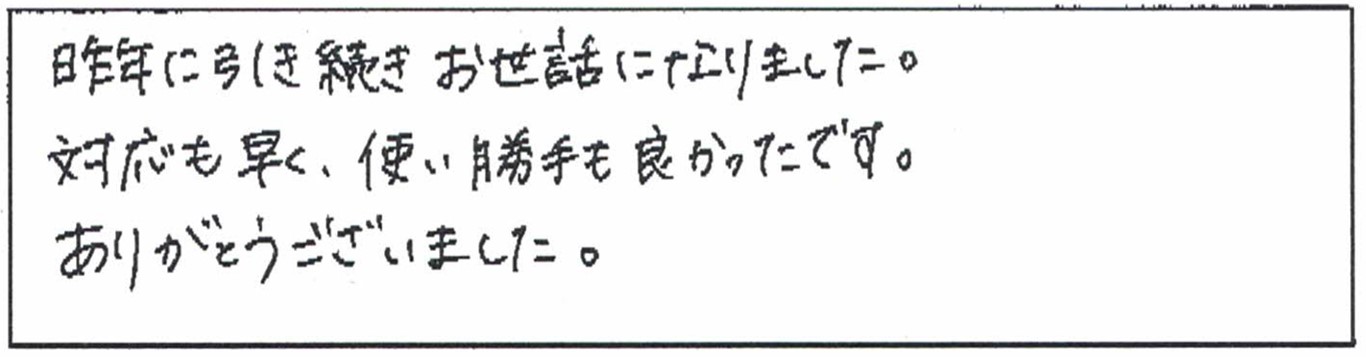 昨年に引き続きお世話になりました。
対応も早く、使い勝手も良かったです。
ありがとうございました。